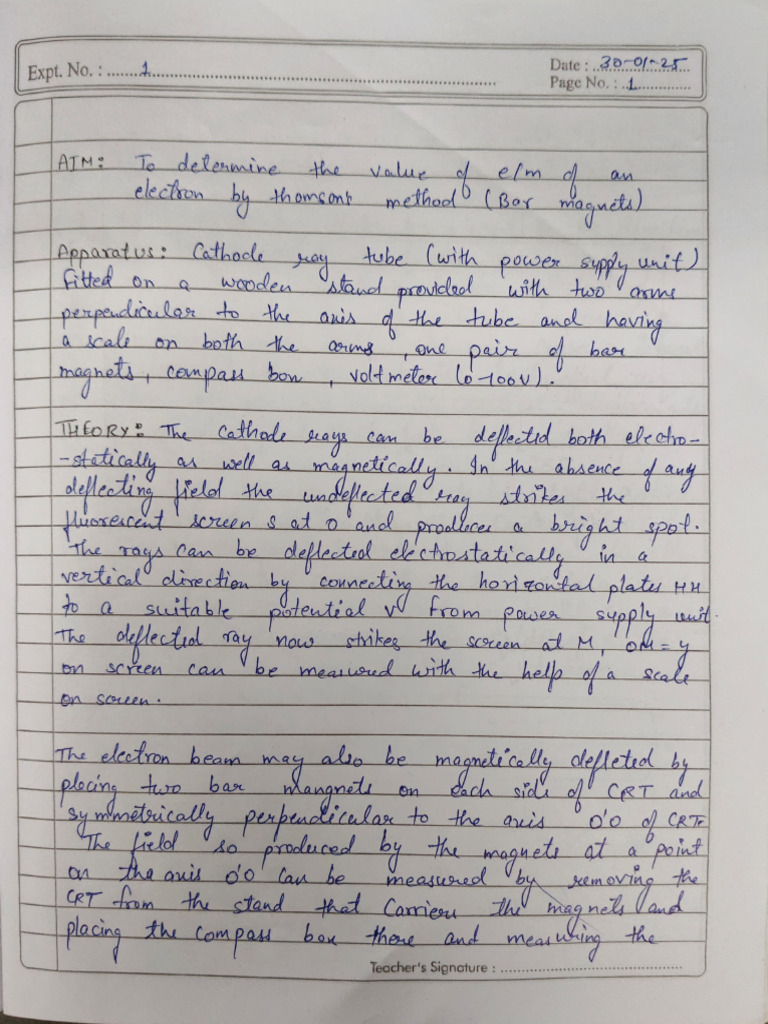 Expt. No. : 1
Date : 30-01-25
Page No. : 1
AIM: To determine the value of e/m of an
electron by thomson's method (Bar magnets)
Apparatus: Cathode ray tube (with power supply unit)
fitted on a wooden stand provided with two arms
perpendicular to the axis of the tube and having
a scale on both the arms, one pair of bar
magnets, compass box, voltmeter (0-100V).
THEORY: The cathode rays can be deflected both electro-
-statically as well as magnetically. In the absence of any
deflecting field the undeflected ray strikes the
fluorescent screen S at O and produces a bright spot.
The rays can be deflected electrostatically in a
vertical direction by connecting the horizontal plates HH
to a suitable potential V from power supply unit.
The deflected ray now strikes the screen at M, OM = y
on screen can be measured with the help of a scale
on screen.
The electron beam may also be magnetically defleted by
placing two bar mangnets on each side of CRT and
symmetrically perpendicular to the axis O'O of CRT.
The field so produced by the magnets at a point
on the axis O'O can be measured by removing the
CRT from the stand that Carries the magnets and
placing the compass box there and measuring the
Teacher's Signature :